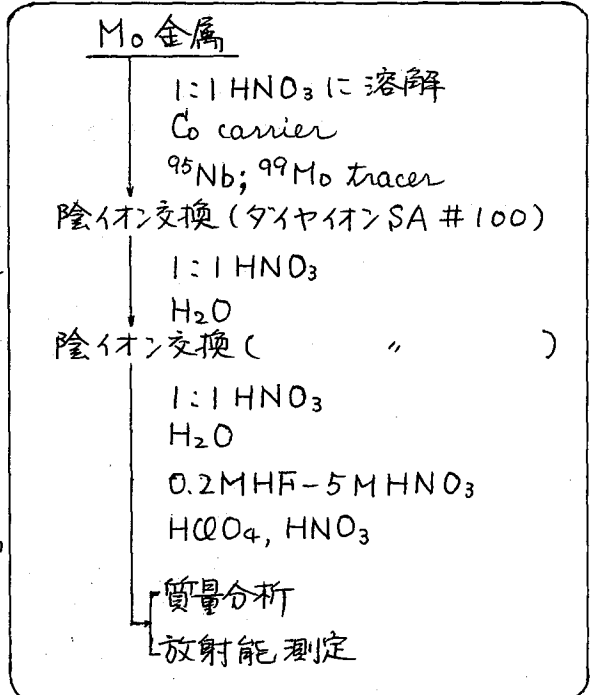 Mo 金属
1:1 HNO₃ に 溶解
Co carrier
⁹⁵Nb; ⁹⁹Mo tracer
陰イオン交換 (ダイヤイオン SA #100)
1:1 HNO₃
H₂O
陰イオン交換 ( 〃 )
1:1 HNO₃
H₂O
0.2M HF-5M HNO₃
HClO₄, HNO₃
質量分析
放射能測定